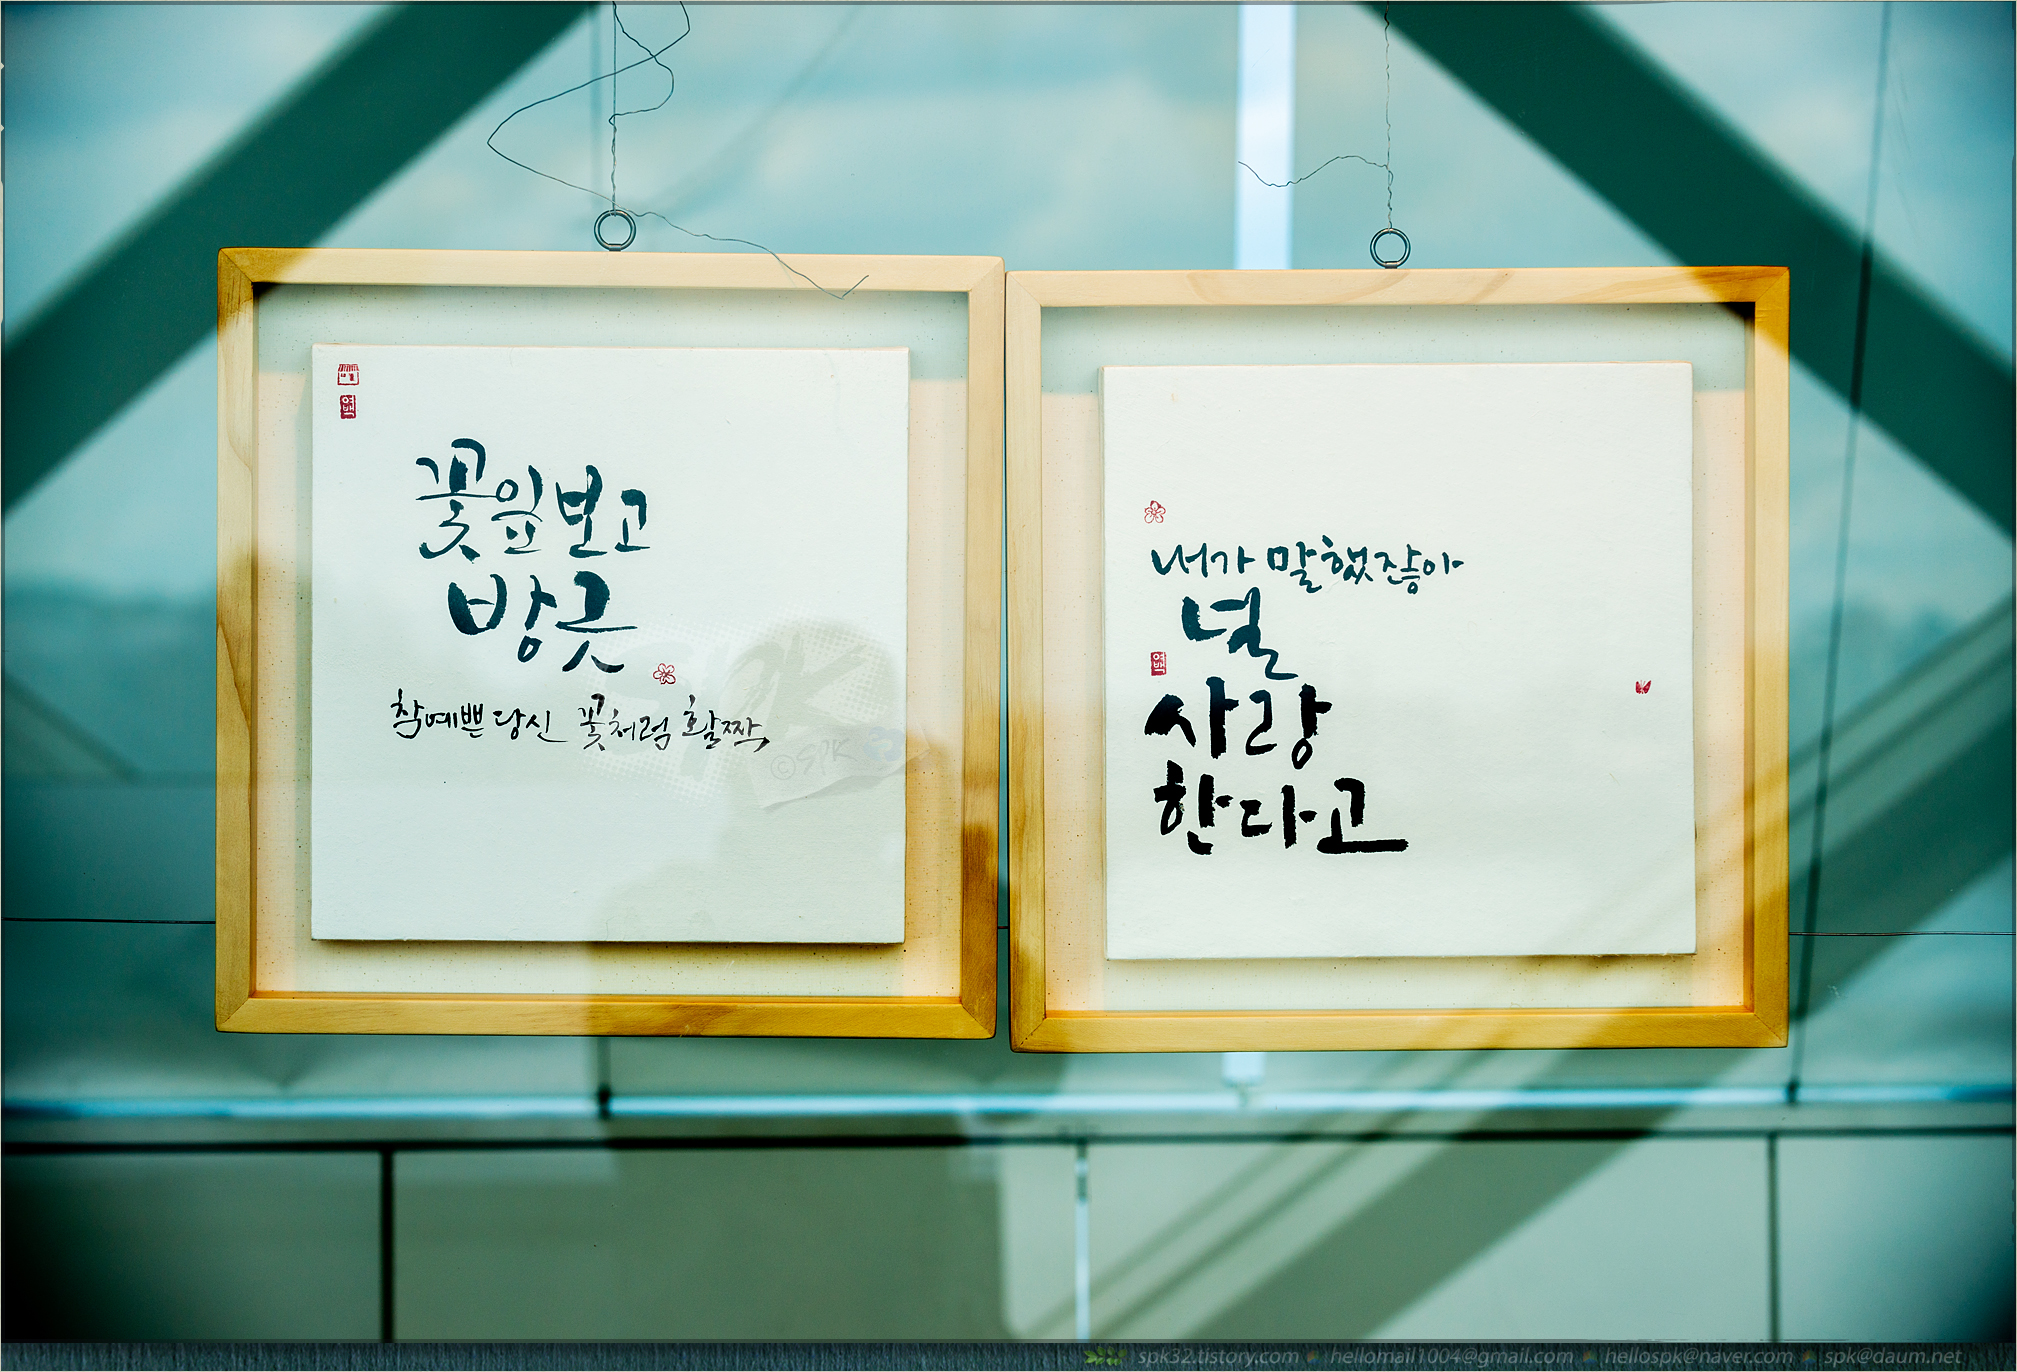 여백
꽃잎보고
방긋
참예쁜당신 꽃처럼 활짝
내가 말했잖아
널
여백
사랑
한다고
©SPK
spk32.tistory.com hellomail1004@gmail.com hellospk@naver.com spk@daum.net